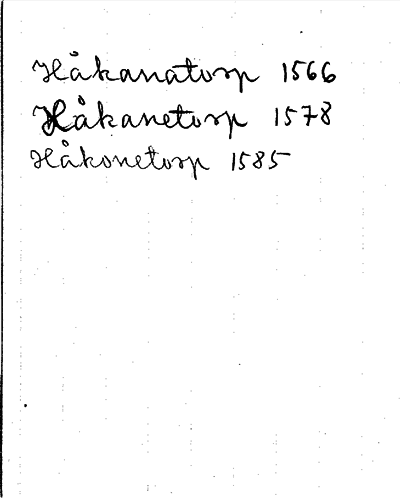 Håkanatorp 1566
Håkanetorp 1578
Håkonetorp 1585